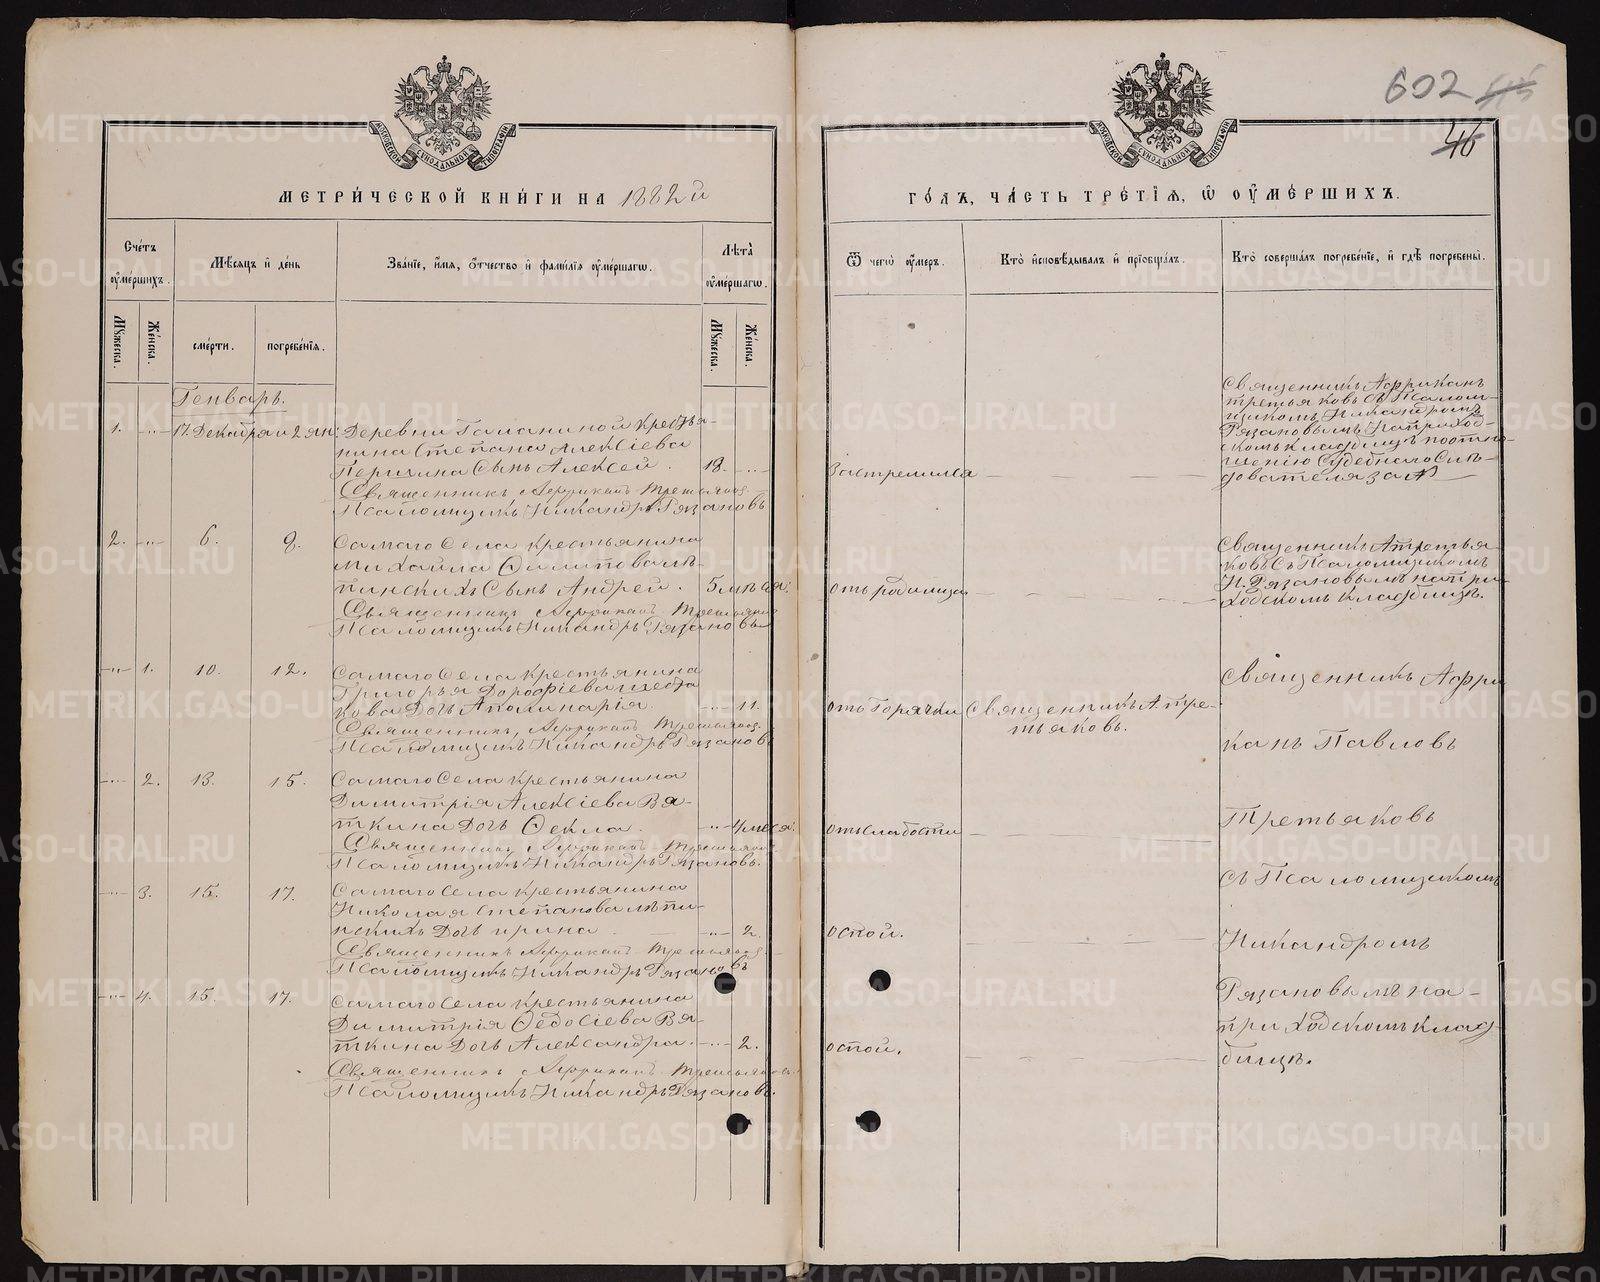 МОСКОВСКОЙ СѴНОДАЛЬНОЙ ТИПОГРАФІИ
МЕТРИ́ЧЕСКОЙ КНИ́ГИ НА 1882й
Сче́тъ ᲂу҆ме́ршихъ.
Мѣ́сяцъ и҆ де́нь
Зва́нїе, и҆́мя, ѻ҆́тчество и҆ фами́лїя ᲂу҆ме́ршагѡ.
Лѣта̀ ᲂу҆ме́ршагѡ.
Мꙋ́жеска.
Же́нска.
сме́рти.
погребе́нїя.
Мꙋ́жеска.
Же́нска.
Генварь.
1. -"- 17 Декабря и 2 ян: Деревни Гаманиной крестья-
нина Степана Алексіева
Перихина Сынъ Алексей. 18. -"-
Священникъ Африканъ Третьяковъ
Псаломщикъ Никандръ Рязановъ
2. -"- 6. 8. Самаго Села крестьянина
Михайла Филипова
Сынъ Андрей. 5 мѣсяц:
Священникъ Африканъ Третьяковъ
Псаломщикъ Никандръ Рязановъ
-"- 1. 10. 12. Самаго Села крестьянина
Григорья Дорофіева
кова Дочь Аполинарія. -"- 11.
Священникъ Африканъ Третьяковъ
Псаломщикъ Никандръ Рязановъ
-"- 2. 13. 15. Самаго Села крестьянина
Димитрія Алексіева Вя-
ткина Дочь Ѳекла. -"- 4 меся:
Священникъ Африканъ Третьяковъ
Псаломщикъ Никандръ Рязановъ.
-"- 3. 15. 17. Самаго Села крестьянина
Николая Степанова
Дочь ирина -"- 2.
Священникъ Африканъ Третьяковъ
Псаломщикъ Никандръ Рязановъ
-"- 4. 15. 17. Самаго Села крестьянина
Димитрія Ѳедосіева Вя-
ткина Дочь Александра. -"- 2.
Священникъ Африканъ Третьяковъ
Псаломщикъ Никандръ Рязановъ.
602
46
МОСКОВСКОЙ СѴНОДАЛЬНОЙ ТИПОГРАФІИ
ГО́ДЪ, ЧА́СТЬ ТРЕ́ТЇЯ, Ѡ҆ ОУ҆МЕ́РШИХЪ.
Ѿ чегѡ̀ ᲂу҆́меръ.
Кто̀ и҆сповѣ́дывалъ и҆ прїѡбща́лъ.
Кто̀ соверша́лъ погребе́нїе, и҆ гдѣ̀ погребены̀.
Застрелился
Священникъ Африканъ
Третьяковъ съ Псалом-
щикомъ Никандромъ
Рязановымъ на приход-
скомъ кладбищѣ по отно-
шенію Судебнаго Слѣ-
дователя за №
отъ родимца
Священникъ А третья
ковъ съ Псаломщикомъ
Н. Рязановымъ на при-
ходскомъ кладбищѣ.
отъ Горячки Священникъ А тре-
тьяковъ.
отъ слабости
оспой.
оспой.
Священникъ Афри
канъ Павловъ
Третьяковъ
съ Псаломщикомъ
Никандромъ
Рязановымъ на-
приходскомъ клад-
бищѣ.
METRIKI.GASO-URAL.RU